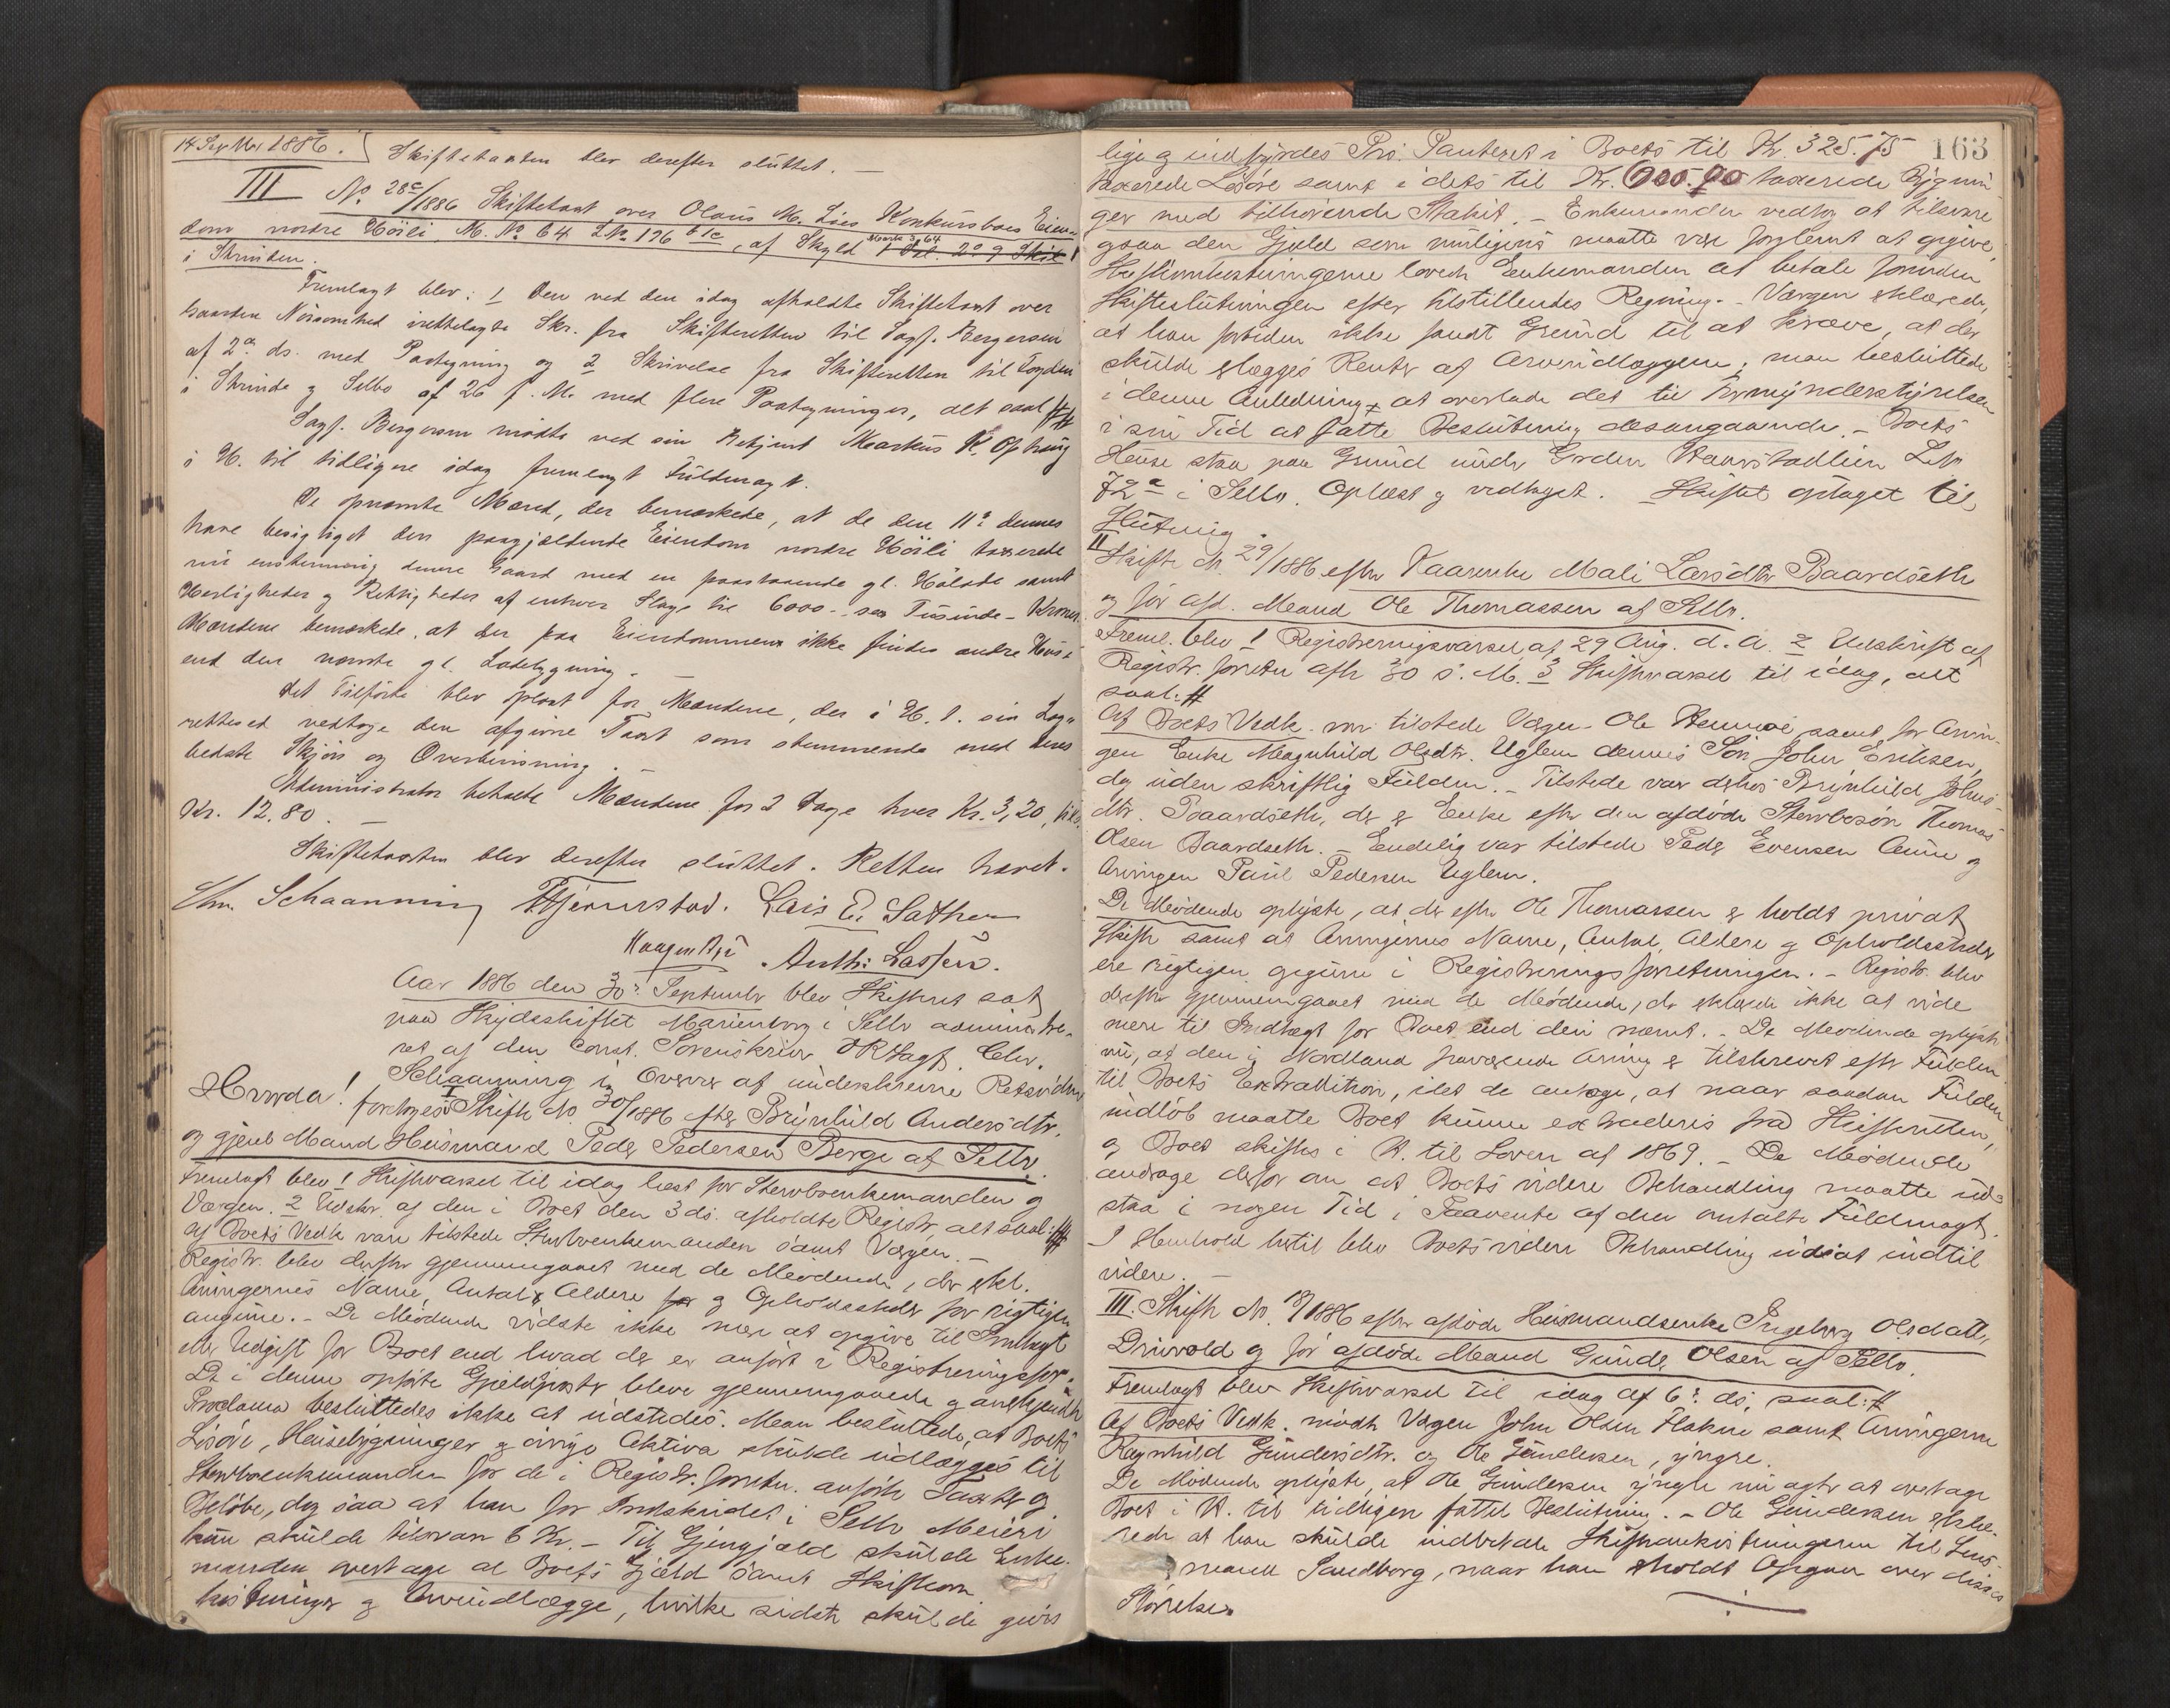 14 Septbr 1886.
Skiftetaxten blev derefter sluttet. —
III No. 28c/1886 Skiftetaxt over Olaus M. Lies Konkursboes Eien-
dom nordre Höili M. No 64 L No 196 b1c, af Skyld Mark 3,64
i Strinden.
Fremlagt blev: 1 Den ved den idag afholdte Skiftetaxt over
Gaarden Nöisomhed irettelagte Skr. fra Skifteretten til Sagf. Bergersen
af 2den ds. med Paategning og 2 Skrivelse fra Skifteretten til Fogden
i Strinde og Selbo af 26 f. M. med flere Paategninger, alt saal. ##
Sagf. Bergersen mödte ved sin Betjent Markus K. Ophaug
i H. til tidligere idag fremlagt Fuldmagt.
De opnævnte Mænd, der bemærkede, at de den 11te dennes
have besigtiget den paagjældende Eiendom nordre Höili taxerede
nu enstemmig denne Gaard med en paastaaende gl. Hölade samt
Herligheder og Rettigheder af enhver Slags til 6000 — sex Tusinde — Kroner.
Mændene bemærkede, at der paa Eiendommen ikke findes andre Huse
end den nævnte gl. Ladebygning. —
Det Tilförte blev oplæst for Mændene, der i H. t. sin Lag-
rettesed vedtoge den afgivne Taxt som stemmende med deres
bedste Skjön og Overbevisning. —
Administrator betalte Mændene for 2 Dage hver Kr. 3,20, tils.
Kr. 12.80. —
Skiftetaxten blev derefter sluttet. Retten hævet.
Chr. Schaanning Lars E. Sæther
Anth: Lassen.
Aar 1886 den 30te September blev Skifteret sat
paa Skydsskiftet Marienborg i Selbo administre-
ret af den const. Sorenskriver ORSagf. Chr.
Schaanning i Overvær af underskrevne Retsvidner
Hvorda! foretoges I Skifte No 30/1886 efter Brynhild Andersdtr.
og gjenl. Mand Husmand Peder Pedersen Berge af Selbo.
Fremlagt blev 1 Skiftevarsel til idag læst for Stervboenkemanden og
Værgen. 2 Udskr. af den i Boet den 3 ds. afholdte Registr., alt saal: ##
Af Boets Vedk. vare tilstede Stervboenkemanden samt Værgen. —
Registr. blev derefter gjennemgaaet med de Mödende, der erkl.
Arvingernes Navne, Antal, Aldere og Opholdssteder for rigtigen
angivne. — De Mödende vidste ikke mere at opgive til Indtægt
eller Udgift for Boet end hvad der er anfört i Registreringsforr.
De i denne opförte Gjeldsposter bleve gjennemgaaede og anerkjendte
Proclama besluttedes ikke at udstedes. Man besluttede, at Boets
Lösöre, Husebygninger og övrige Aktiva skulde udlægges til
Stervboenkemanden for de i Registr. forretn. anförte Taxter og
Belöbe, dog saa at han for Indskuddet i Selbo Meieri
kun skulde tilsvare 6 Kr. — Til Gjengjæld skulde Enke-
manden overtage al Boets Gjæld samt Skifteom-
kostninger og Arveudlægge, hvilke sidste skulde gives
163
lige og indföres Pro. Panteret i Boets til Kr. 325.75
taxerede Lösöre samt i dets til Kr. taxerede Bygnin-
ger med tilhörende Stakit. — Enkemanden vedtog at tilsvare
ogsaa den Gjæld som muligens maatte være forglemt at opgive.
Skifteomkostningerne lovede Enkemanden at betale forinden
Skifteslutningen efter tilstillendes Regning. — Værgen erklærede,
at han fortiden ikke fandt Grund til at kræve, at der
skulde erlægges Renter af Arveudlæggene; man besluttede
i denne Anledning at overlade det til Formynderstyrelsen
i sin Tid at fatte Beslutning desangaaende. — Boets
Huse staa paa Grund under Gaarden Kaarstadlien L No
72a i Selbo. Oplæst og vedtaget. Skiftet optaget til
Slutning.
II Skifte No. 29/1886 efter Kaarenke Mali Larsdtr Baardseth
og för afd. Mand Ole Thomassen af Selbo.
Freml. blev 1 Registreringsvarsel af 29 Aug. d. A. 2 Udskrift af
Registr. forretn. afh. 30 s. M. 3 Skiftevarsel til idag, alt
saal: #
Af Boets Vedk. var tilstede Værgen Ole samt for Arvin-
gen Enke Magnhild Olsdtr. Uglem dennes Sön John Eriksen,
dog uden skriftlig Fuldm. — Tilstede var derhos Brynhild Johns-
dtr. Baardseth, der er Enke efter den afdöde Stervbosön Thomas
Olsen Baardseth. — Endelig var tilstede Peder Evensen Aune og
Arvingen Paul Pedersen Uglem.
De Mödende oplyste, at der efter Ole Thomassen er holdt privat
Skifte samt at Arvingernes Navne, Antal, Aldere og Opholdssteder
ere rigtigen opgivne i Registreringsforretningen. — Registr. blev
derefter gjennemgaaet med de Mödende, der erklærede ikke at vide
mere til Indtægt for Boet end deri nævnt. — De Mödende oplyste
nu, at den i Nordland fraværende Arving er tilskrevet efter Fuldm.
til Boets Extradition, idet de antoge, at naar saadan Fuldm.
indlöb maatte Boet kunne extraderes fra Skifteretten,
og Boet skiftes i H. til Loven af 1869. — De Mödende
androge derfor om at Boets videre Behandling maatte ud-
staa i nogen Tid i Paavente af den omtalte Fuldmagt.
I Henhold hertil blev Boets videre Behandling udsat indtil
videre. —
III. Skifte No. 18/1886 efter afdöde Husmandsenke Ingeborg Olsdatter
Drivvold og för afdöde Mand Gunder Olsen af Selbo.
Fremlagt blev Skiftevarsel til idag af 6te ds. saal: #
Af Boets Vedk. mödte Værgen John Olsen Flakne samt Arvingerne
Ragnhild Gundersdtr. og Ole Gundersen, yngre.
De Mödende oplyste, at Ole Gundersen yngre nu agter at overtage
Boet i H. til tidligere fattet Beslutning. — Ole Gundersen erklæ-
rede at han skulde indbetale Skifteomkostningerne til Lens-
mand Sandborg, naar han erholdt Opgave over disses
Störrelse.